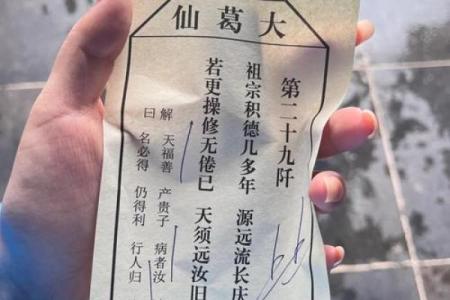 大葛仙
第二十九阡
祖宗积德几多年 源远流长庆
若更操修无倦已 天须远汝旧
解 天福善 产贵子 病者汝
曰 名必得 仍得利 行人归